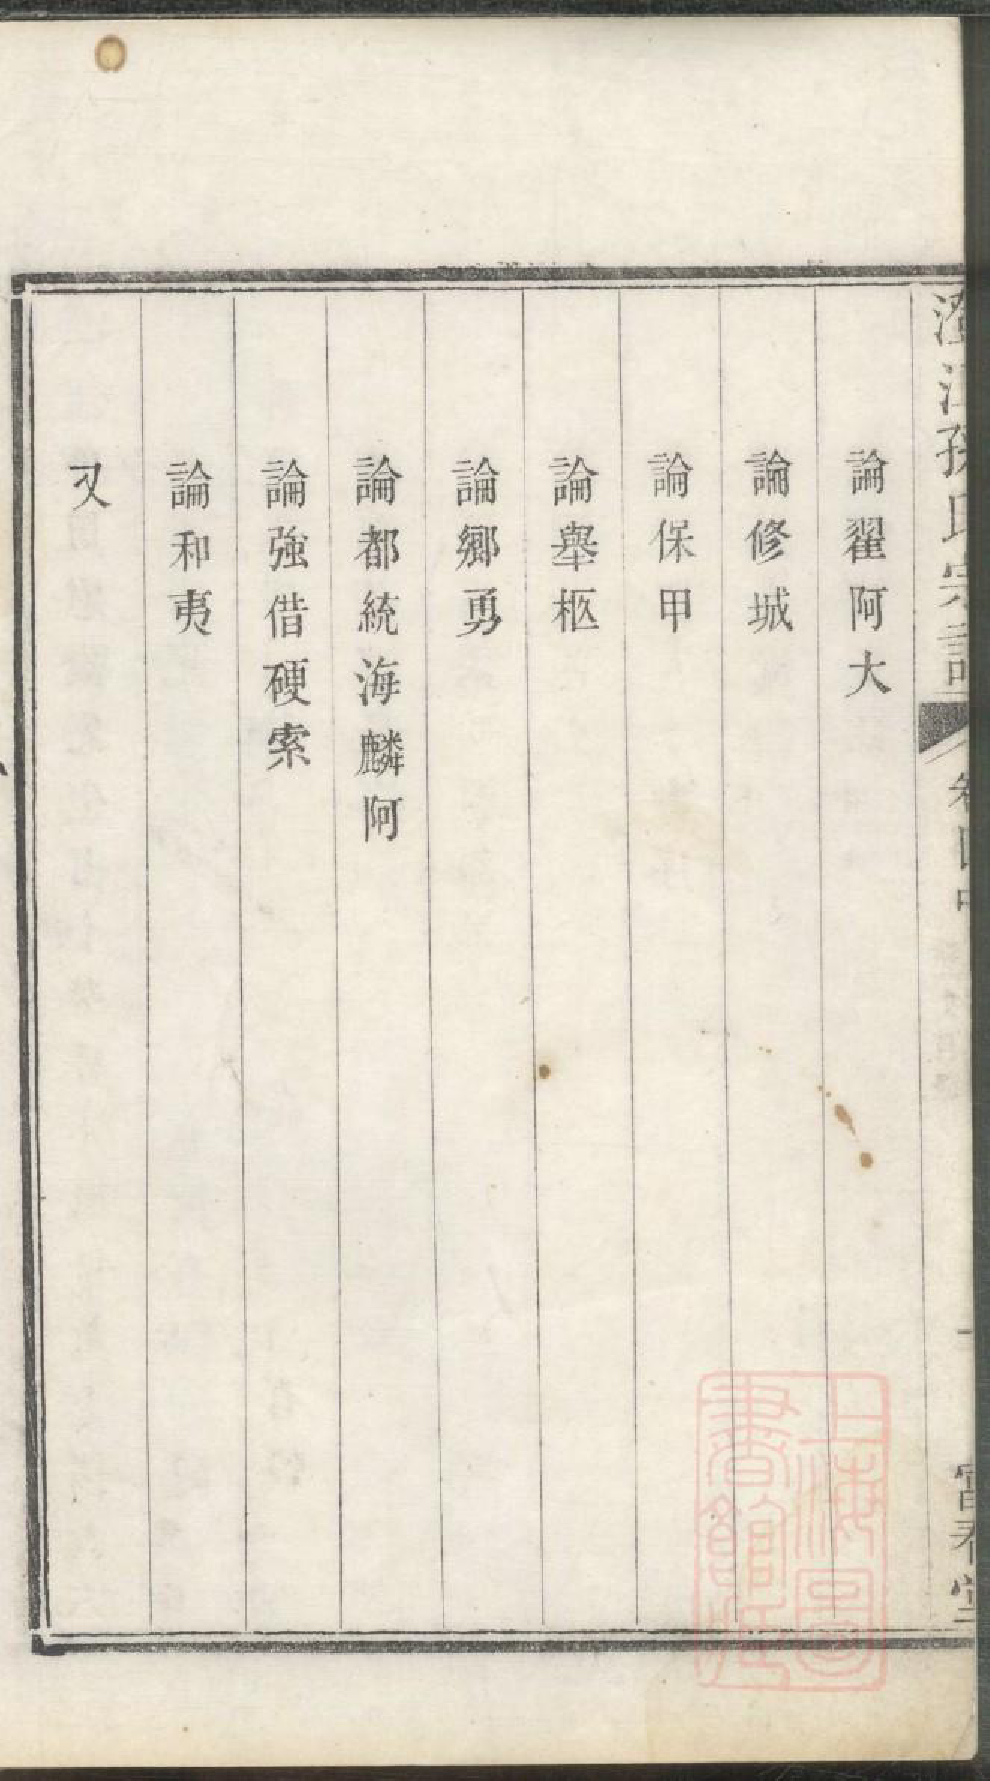 澄江孫氏宗譜 卷四中 富春堂
論翟阿大
論修城
論保甲
論舉柩
論鄉勇
論都統海麟阿
論強借硬索
論和夷
又
上海圖書館藏